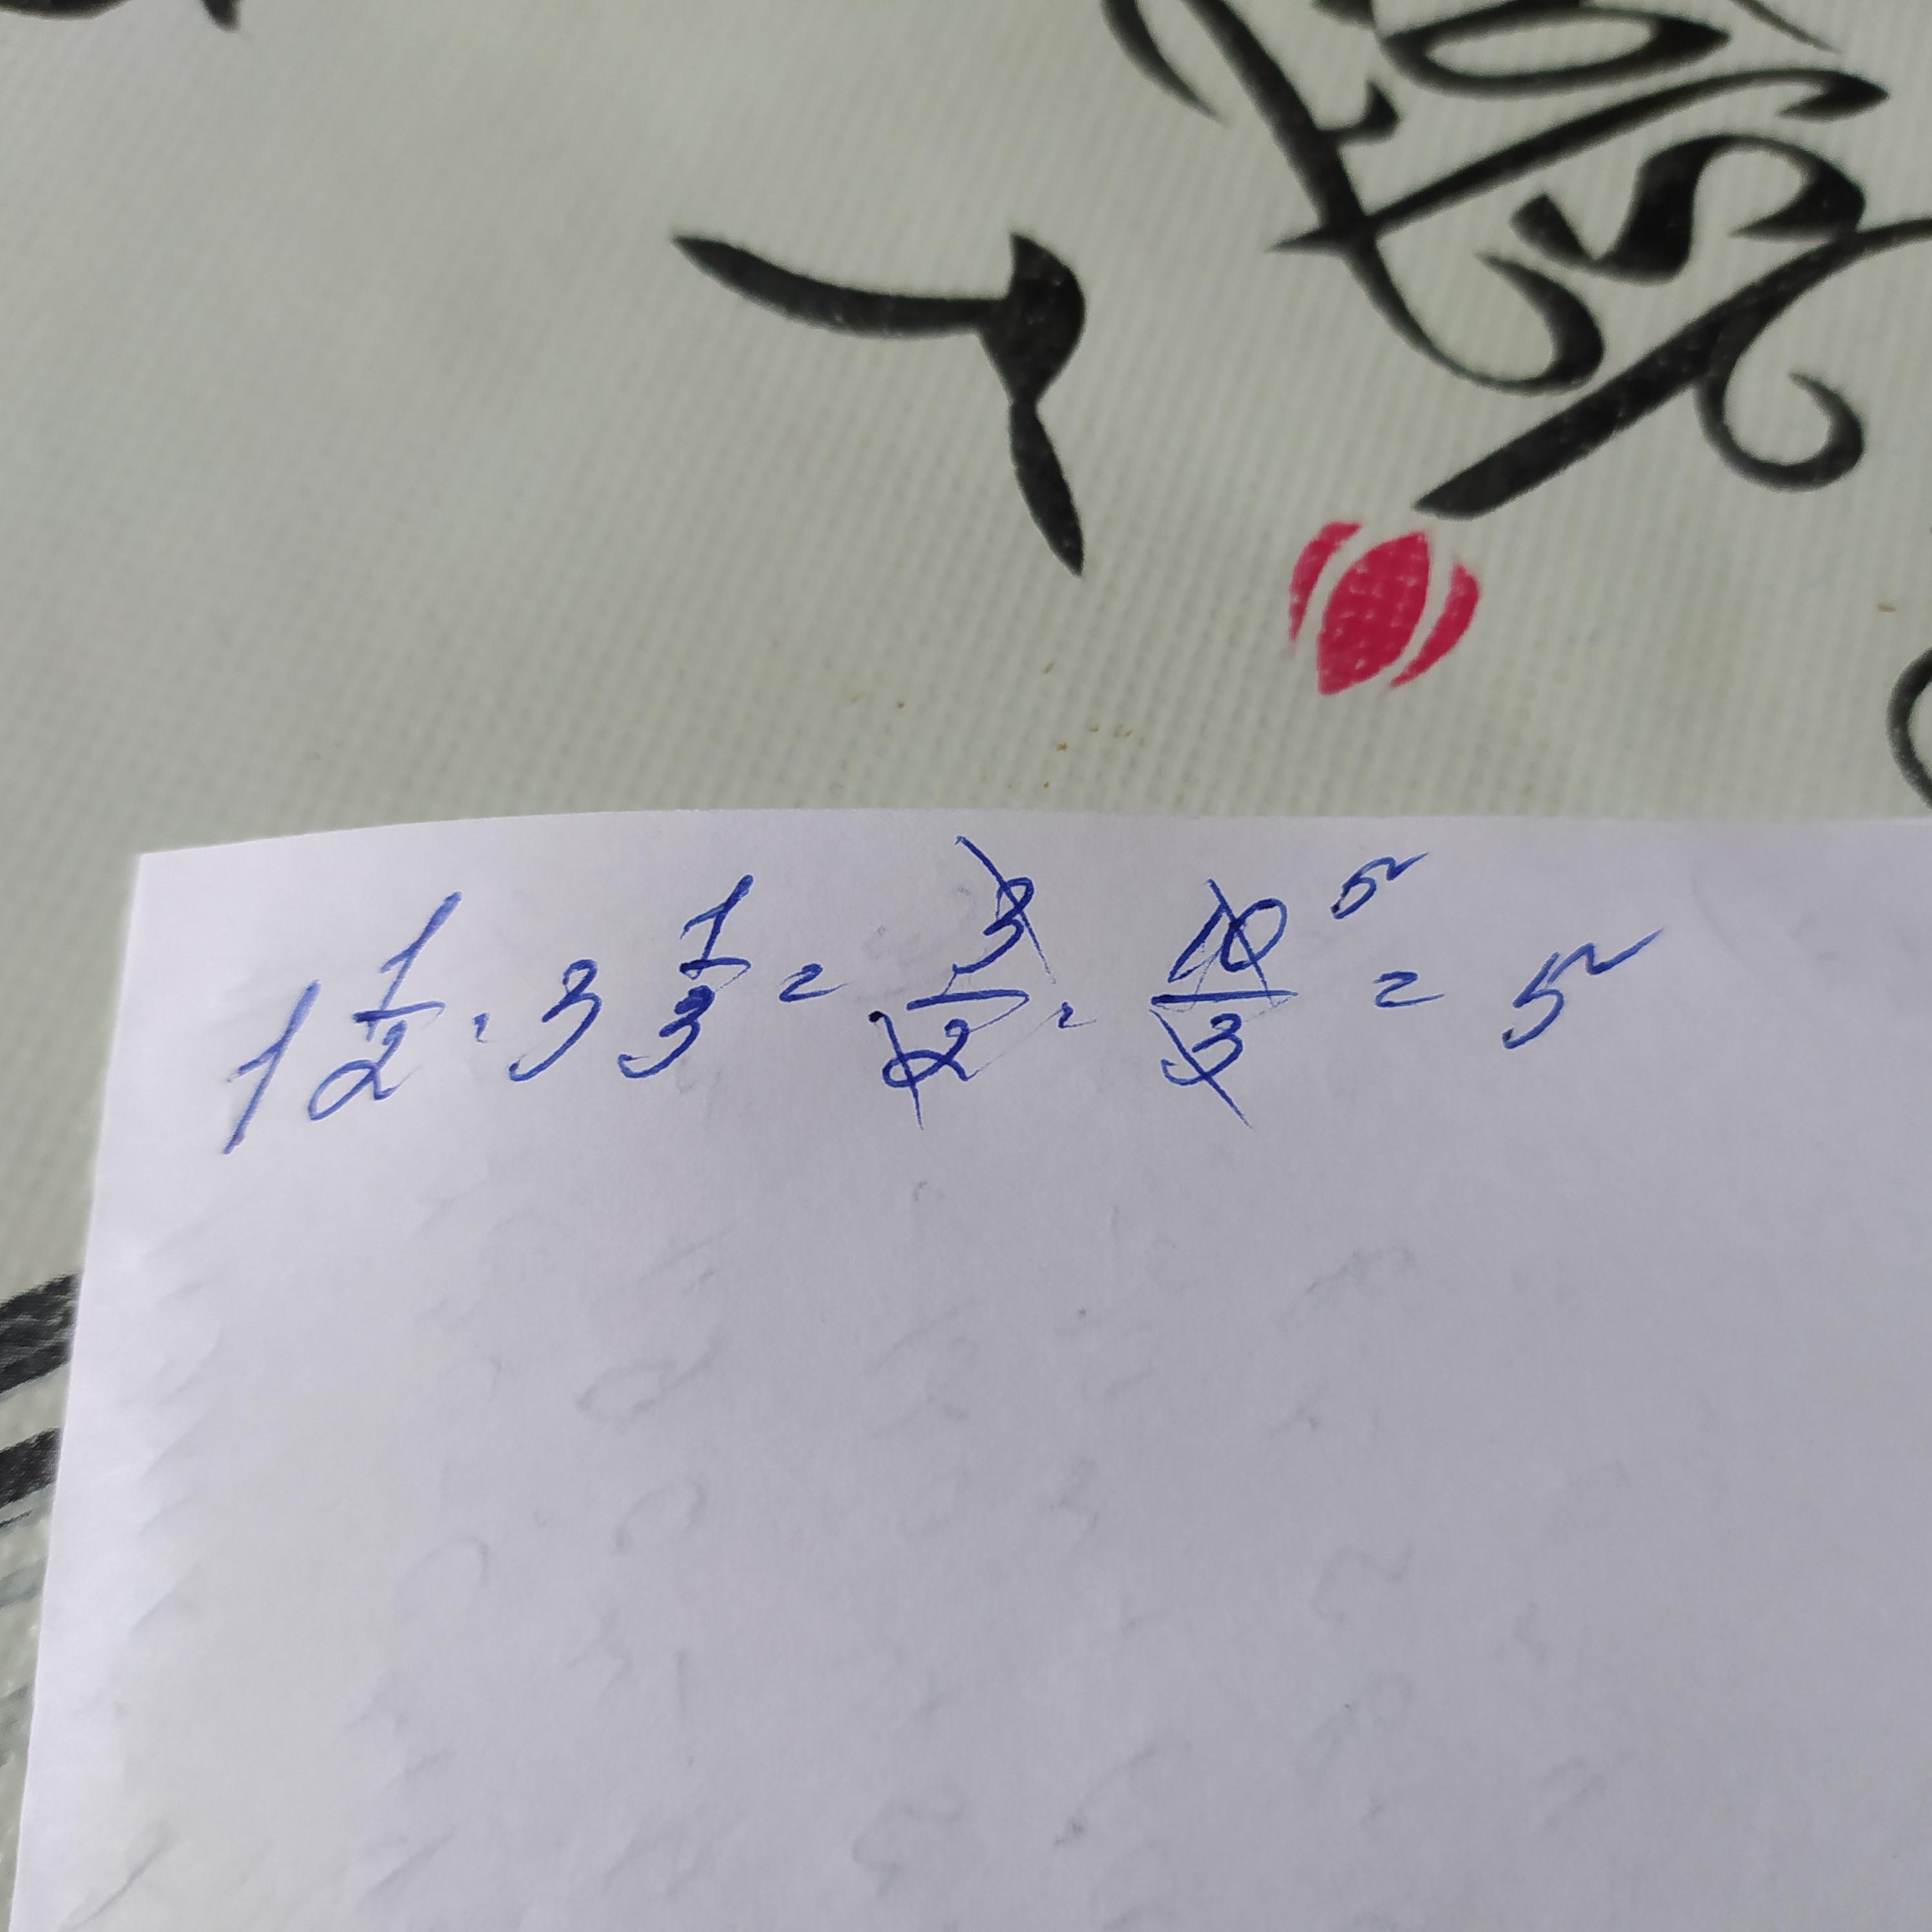 1 1/2 · 3 1/3 = 3/2 · 10/3 5 = 5